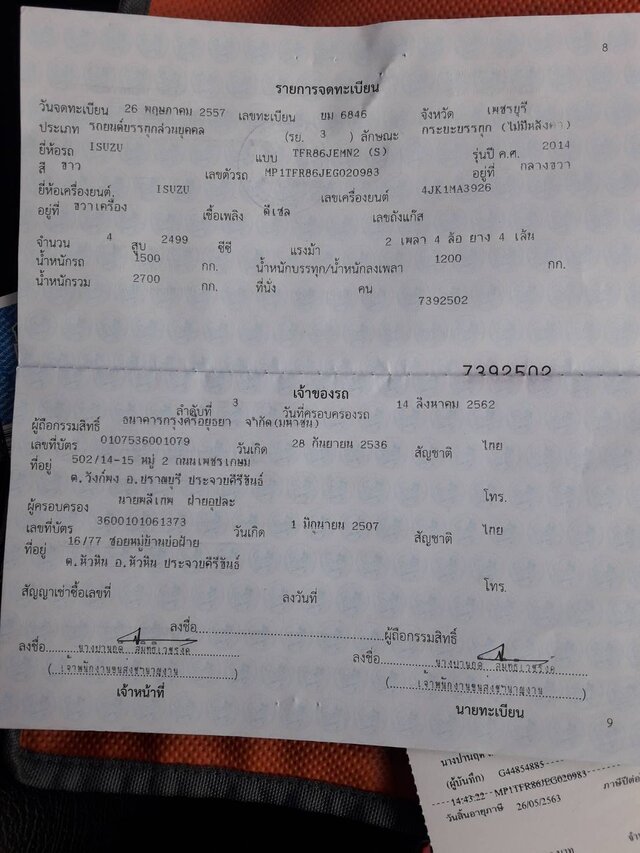 8
รายการจดทะเบียน
วันจดทะเบียน 26 พฤษภาคม 2557 เลขทะเบียน บม 6846 จังหวัด เพชรบุรี
ประเภท รถยนต์บรรทุกส่วนบุคคล (รย. 3 ) ลักษณะ กระบะบรรทุก (ไม่มีหลังคา)
ยี่ห้อรถ ISUZU แบบ TFR86JEMN2 (S) รุ่นปี ค.ศ. 2014
สี ขาว เลขตัวรถ MP1TFR86JEG020983 อยู่ที่ กลางขวา
ยี่ห้อเครื่องยนต์ ISUZU เลขเครื่องยนต์ 4JK1MA3926
อยู่ที่ ขวาเครื่อง เชื้อเพลิง ดีเซล เลขถังแก๊ส
จำนวน 4 สูบ 2499 ซีซี แรงม้า 2 เพลา 4 ล้อ ยาง 4 เส้น
น้ำหนักรถ 1500 กก. น้ำหนักบรรทุก/น้ำหนักลงเพลา 1200 กก.
น้ำหนักรวม 2700 กก. ที่นั่ง คน
7392502
7392502
เจ้าของรถ
ลำดับที่ 3 วันที่ครอบครองรถ 14 สิงหาคม 2562
ผู้ถือกรรมสิทธิ์ ธนาคารกรุงศรีอยุธยา จำกัด(มหาชน)
เลขที่บัตร 0107536001079 วันเกิด 28 กันยายน 2536 สัญชาติ ไทย
ที่อยู่ 502/14-15 หมู่ 2 ถนนเพชรเกษม
ต.วังก์พง อ.ปราณบุรี ประจวบคีรีขันธ์ โทร.
ผู้ครอบครอง นายพลีเทพ ฝ่ายอุปละ
เลขที่บัตร 3600101061373 วันเกิด 1 มิถุนายน 2507 สัญชาติ ไทย
ที่อยู่ 16/77 ซอยหมู่บ้านบ่อฝ้าย
ต.หัวหิน อ.หัวหิน ประจวบคีรีขันธ์ โทร.
สัญญาเช่าซื้อเลขที่ ลงวันที่
ลงชื่อ ผู้ถือกรรมสิทธิ์
ลงชื่อ ลงชื่อ
(เจ้าพนักงานขนส่งชำนาญงาน) (เจ้าพนักงานขนส่งชำนาญงาน)
เจ้าหน้าที่ นายทะเบียน
9
(ผู้บันทึก) G44854885
14:43:22 MP1TFR86JEG020983 ภาษีปีต่อ
วันสิ้นอายุภาษี 26/05/2563